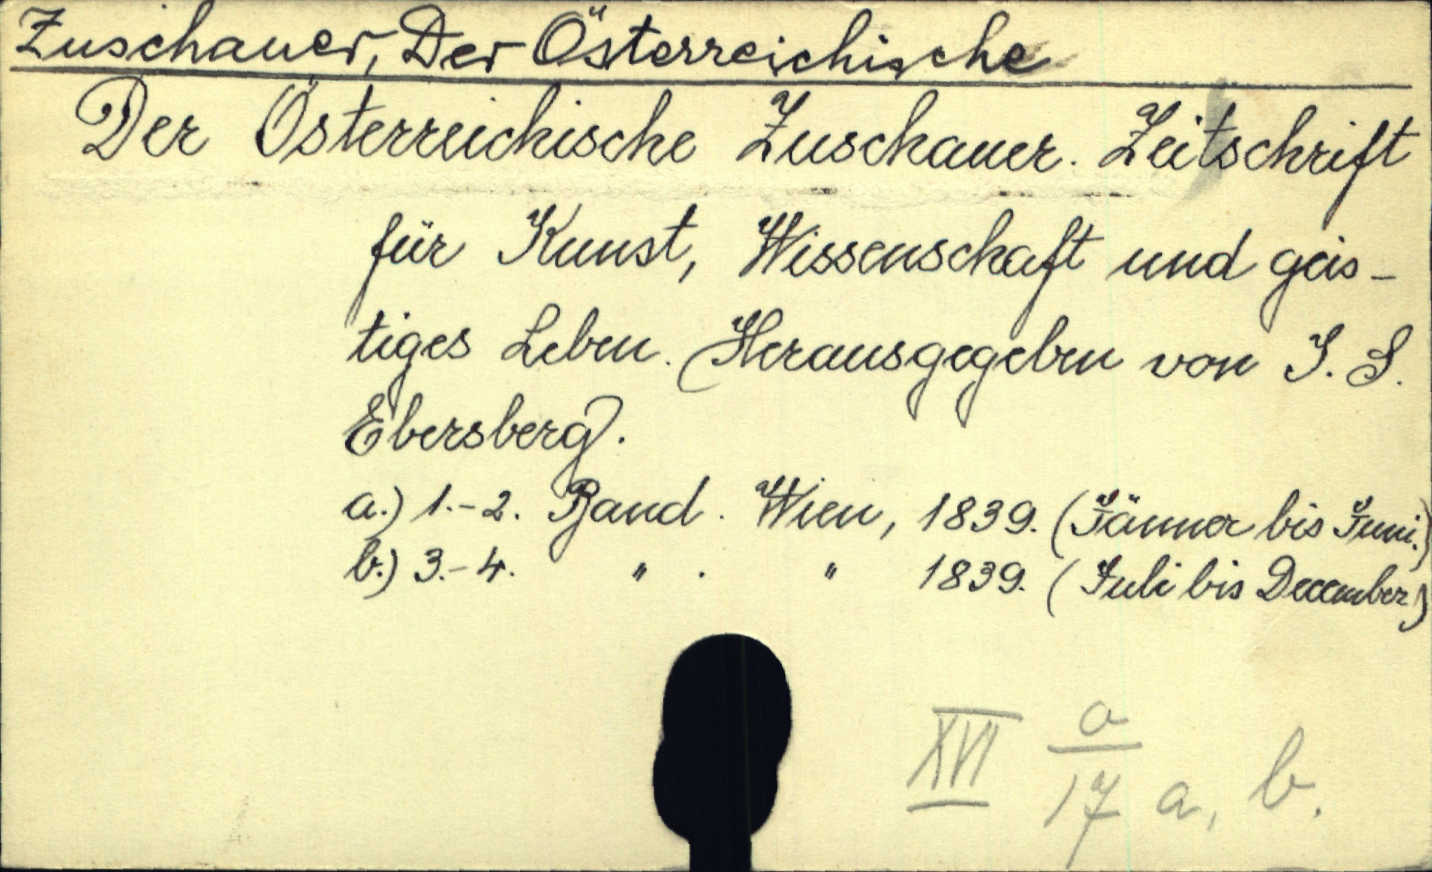 Zuschauer, Der Österreichische
Der Österreichische Zuschauer. Zeitschrift
für Kunst, Wissenschaft und geis-
tiges Leben. (Herausgegeben von J. S.
Ebersberg).
a.) 1.-2. Band. Wien, 1839. (Jänner bis Juni.)
b.) 3.-4. " . " 1839. (Juli bis December)
XVI a/17 a, b.